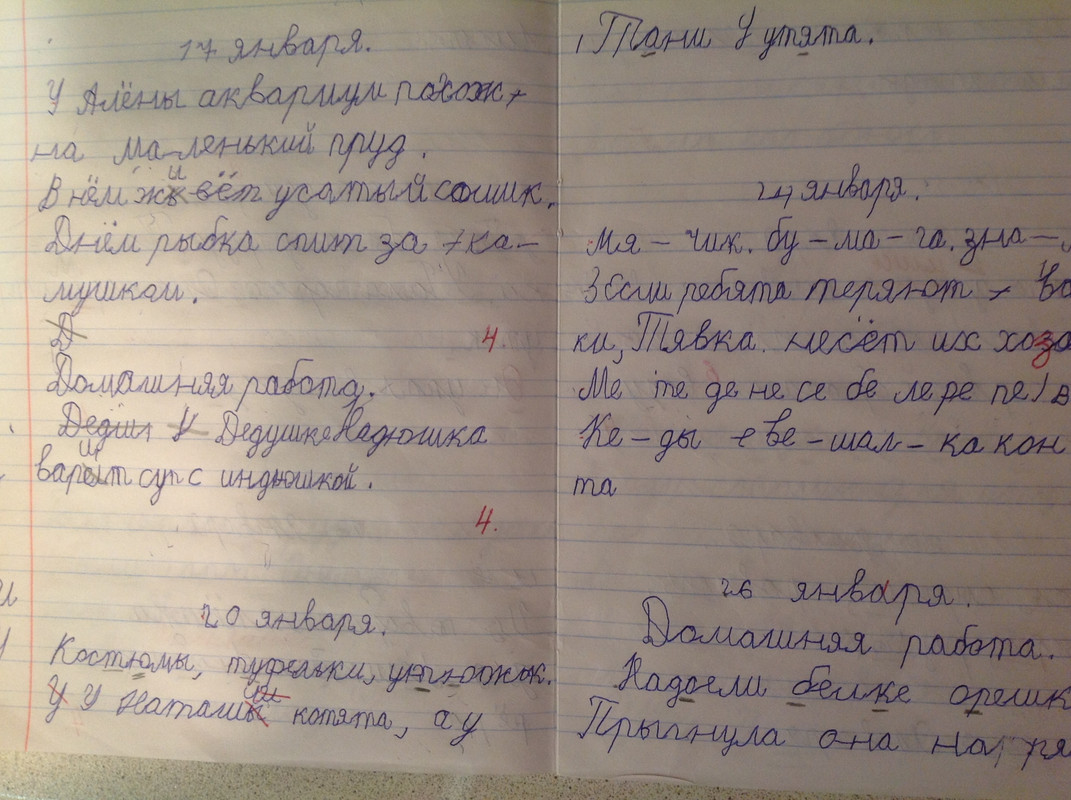 17 января.
У Алёны аквариум похож
на ма-ленький пруд.
В нём живёт усатый сомик.
Днём рыбка спит за ка-
мушком.
Д
4.
Домашняя работа.
Дедушке Надюшка
варит суп с индюшкой.
4.
20 января.
Костюмы, туфельки, утюжок.
У У Наташи котята, а у
Тани У утята.
24 января.
Мя - чик. бу - ма - га. зна -
Если ребята теряют
ки, Тявка. несёт их хозя
Ме те де не се бе ле ре пе в
Ке - ды ве - шал - ка кон
та
26 января.
Домашняя работа.
Надоели белке орешк
Прыгнула она на ря